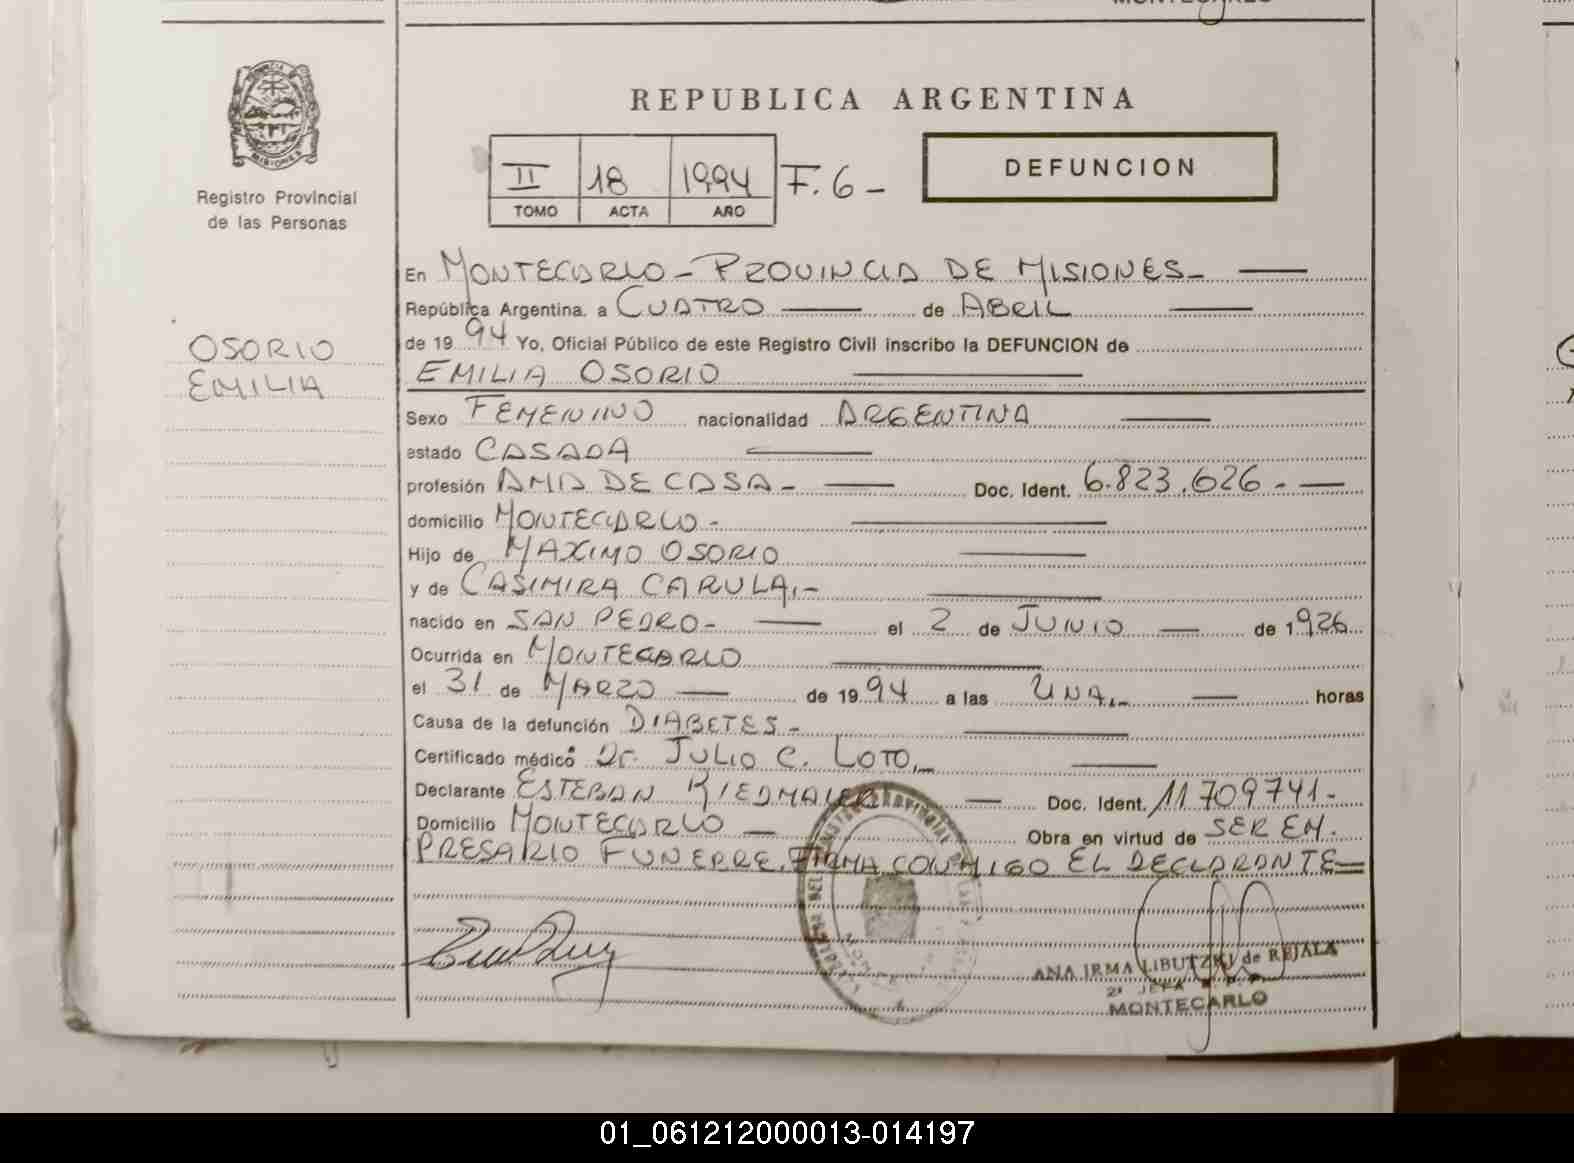 MONTECARLO
REPUBLICA ARGENTINA
MISIONES
Registro Provincial
de las Personas
II 18 1994 F. 6 -
TOMO ACTA AÑO
DEFUNCION
OSORIO
EMILIA
En MONTECARLO - PROVINCIA DE MISIONES -
República Argentina. a CUATRO de ABRIL
de 1994 Yo, Oficial Público de este Registro Civil inscribo la DEFUNCION de
EMILIA OSORIO
Sexo FEMENINO nacionalidad ARGENTINA
estado CASADA
profesión AMA DE CASA - Doc. Ident. 6.823.626 -
domicilio MONTECARLO -
Hijo de MAXIMO OSORIO
y de CASIMIRA CARULA.-
nacido en SAN PEDRO - el 2 de JUNIO de 1926
Ocurrida en MONTECARLO
el 31 de MARZO de 1994 a las UNA.- horas
Causa de la defunción DIABETES -
Certificado médico Dr. JULIO C. LOTO.-
Declarante ESTEBAN RIEDMAIER Doc. Ident. 11709741 -
Domicilio MONTECARLO - Obra en virtud de SER EM.
PRESARIO FUNEBRE. FIRMA CONMIGO EL DECLARANTE
ANA IRMA LIBUTZKI de REJALA
2ª JEFA
MONTECARLO
01_061212000013-014197